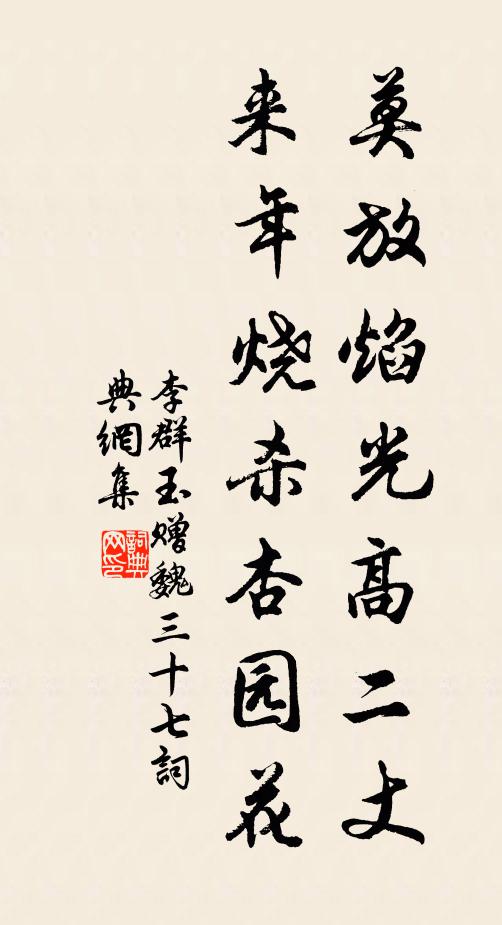 莫放焰光高二丈
来年烧杀杏园花
李群玉赠魏三十七詞
典網集
詞典
网印